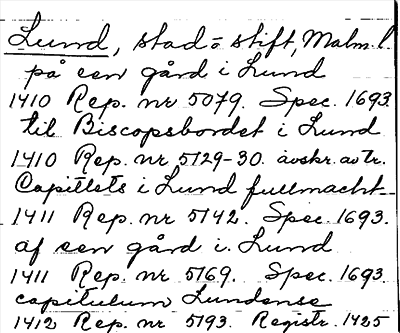 Lund, stad o stift, Malm. l.
på een gård i Lund
1410 Rep. nr 5079. Spec. 1693.
til Biscopsbordet i Lund
1410 Rep. nr 5129-30. avskr. av tr.
Capitlets i Lund fullmacht
1411 Rep. nr 5142. Spec. 1693.
af een gård i Lund
1411 Rep. nr 5169. Spec. 1693
capitulum Lundense
1412 Rep. nr 5193. Registr. 1425